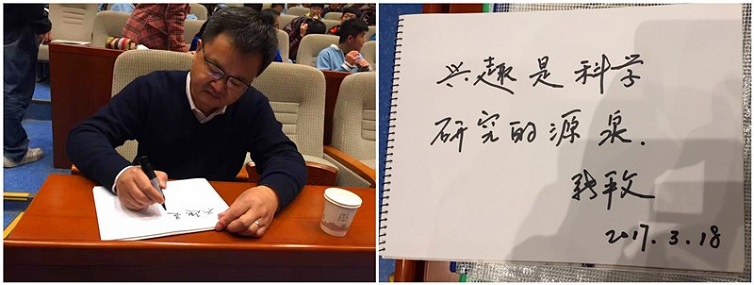 兴趣是
兴趣是科学
研究的源泉.
2017.3.18